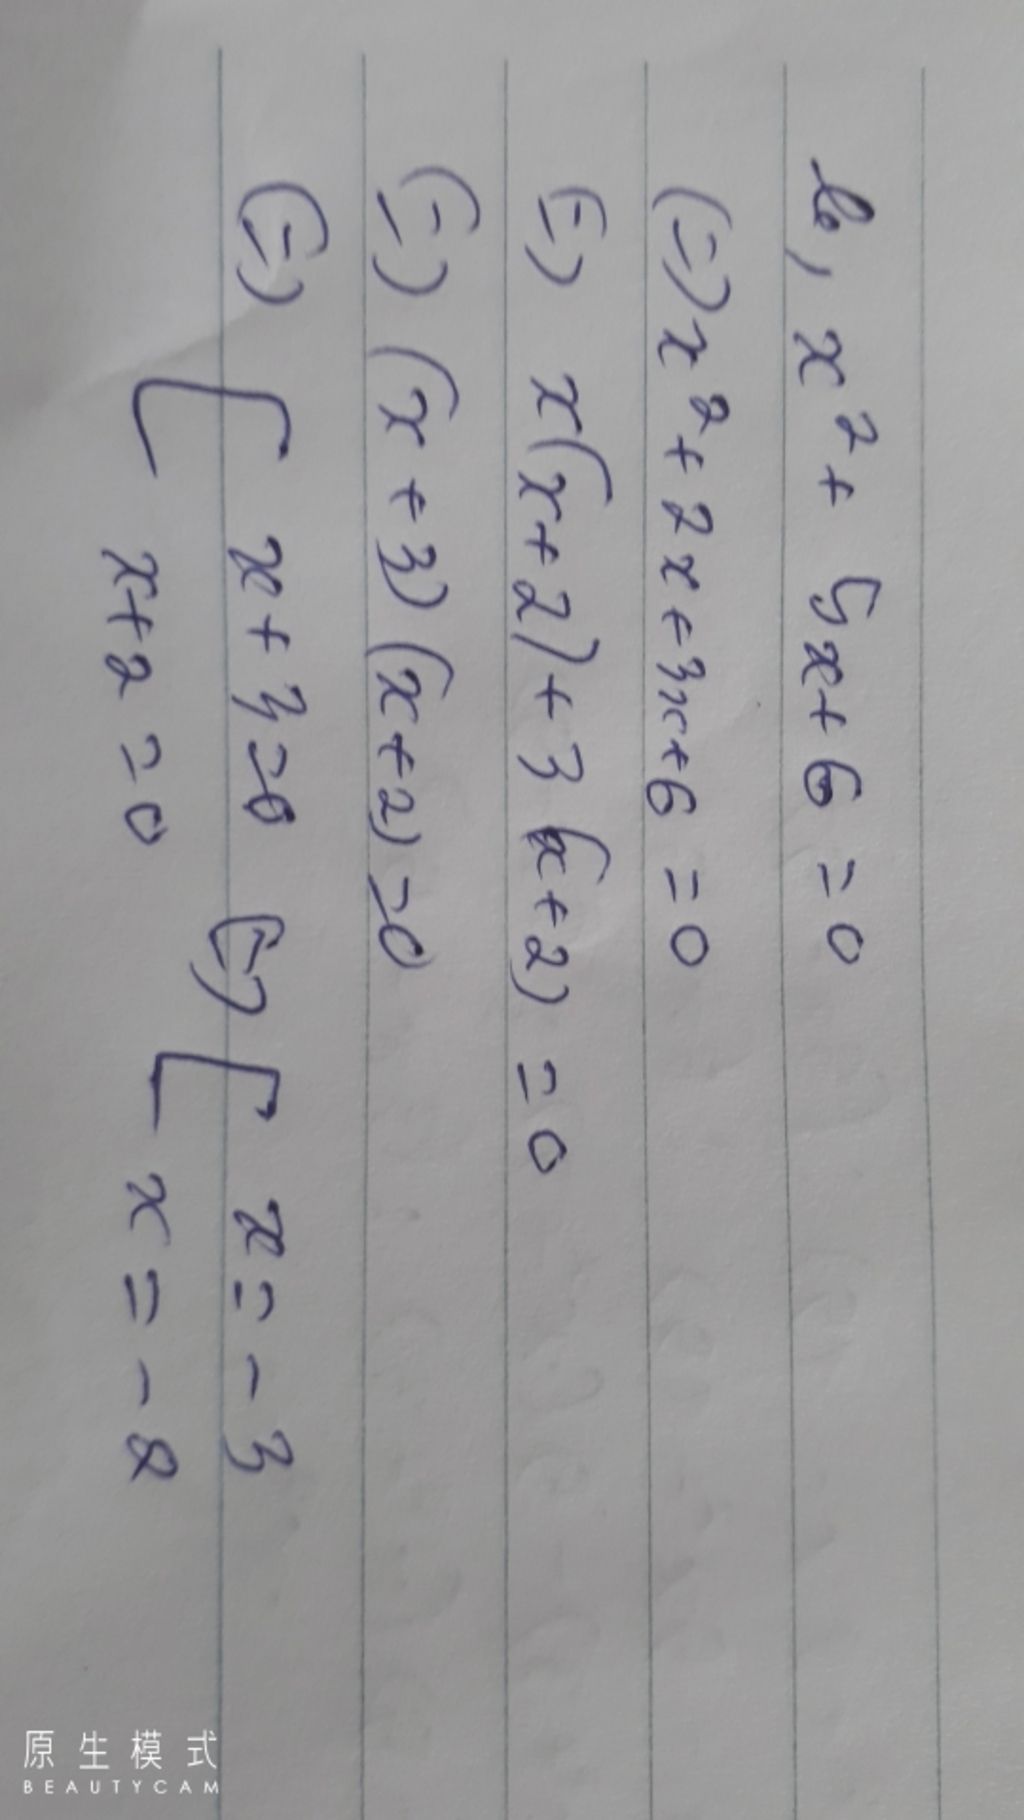 b, x² + 5x + 6 = 0
(=) x² + 2x + 3x + 6 = 0
(=) x(x + 2) + 3(x + 2) = 0
(=) (x + 3)(x + 2) = 0
(=) [ x + 3 = 0 (=) [ x = -3
x + 2 = 0 x = -2
原生模式
BEAUTYCAM